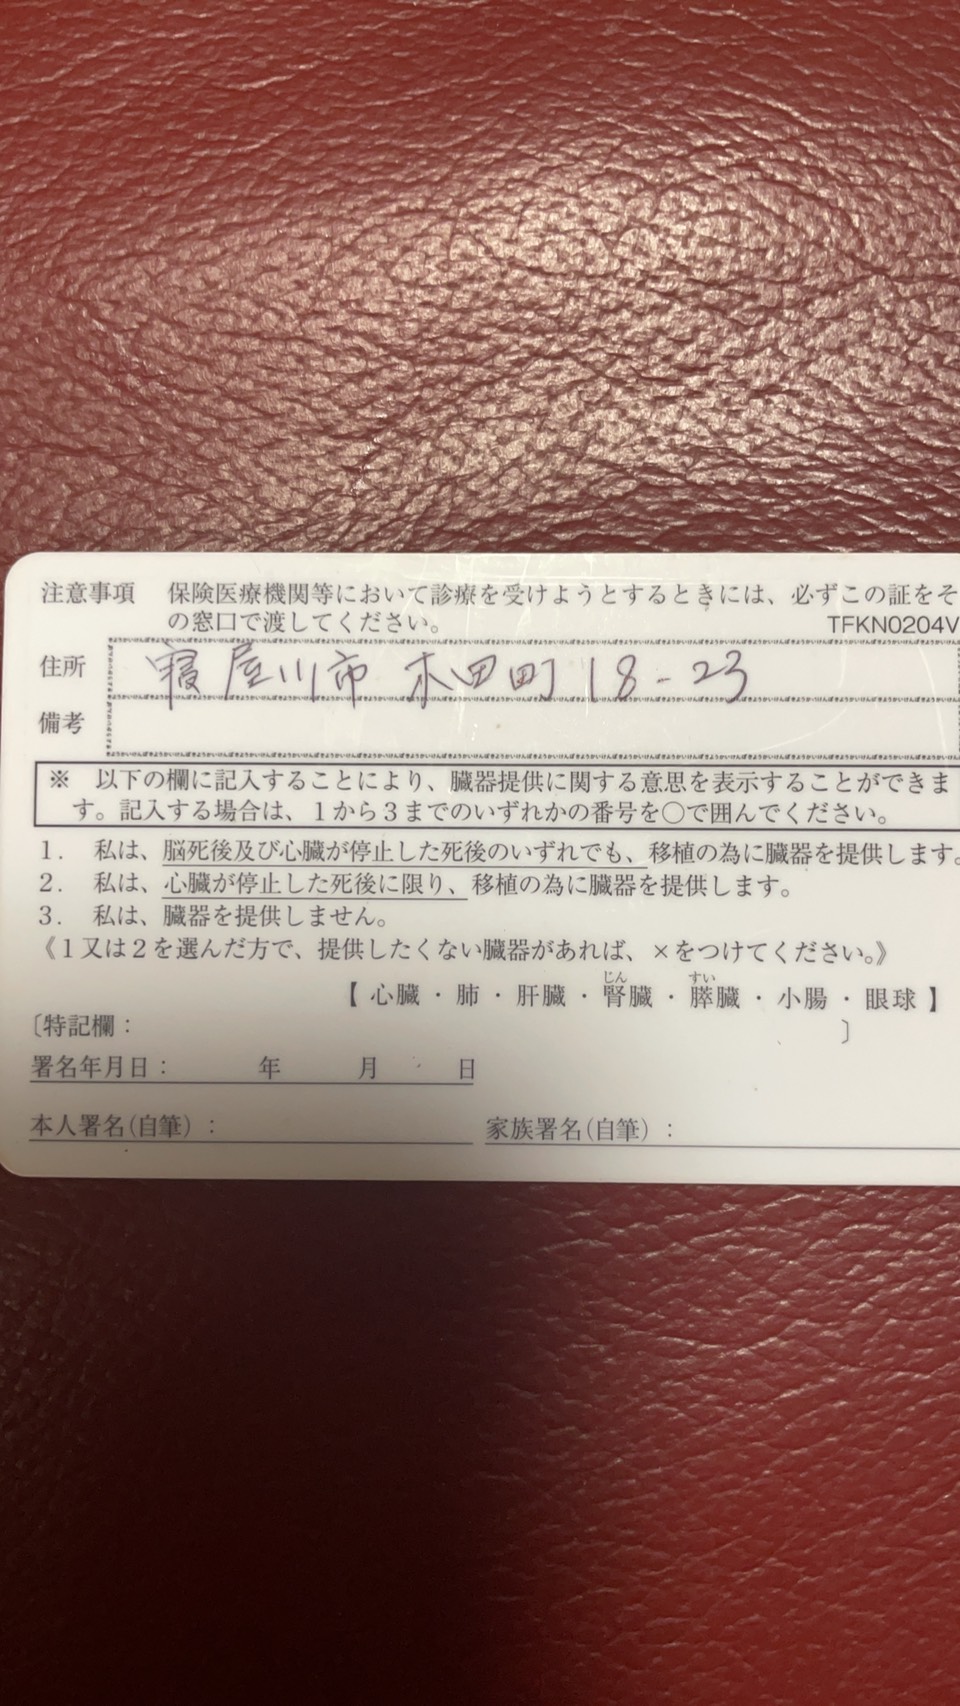 注意事項 保険医療機関等において診療を受けようとするときには、必ずこの証をそ
の窓口で渡してください。
TFKN0204V
住所 寝屋川市 木田町 18-23
備考
※ 以下の欄に記入することにより、臓器提供に関する意思を表示することができま
す。記入する場合は、1から3までのいずれかの番号を〇で囲んでください。
1. 私は、脳死後及び心臓が停止した死後のいずれでも、移植の為に臓器を提供します。
2. 私は、心臓が停止した死後に限り、移植の為に臓器を提供します。
3. 私は、臓器を提供しません。
《1又は2を選んだ方で、提供したくない臓器があれば、×をつけてください。》
じん すい
【 心臓 ・ 肺 ・ 肝臓 ・ 腎臓 ・ 膵臓 ・ 小腸 ・ 眼球 】
〔特記欄: 〕
署名年月日: 年 月 日
本人署名(自筆): 家族署名(自筆):